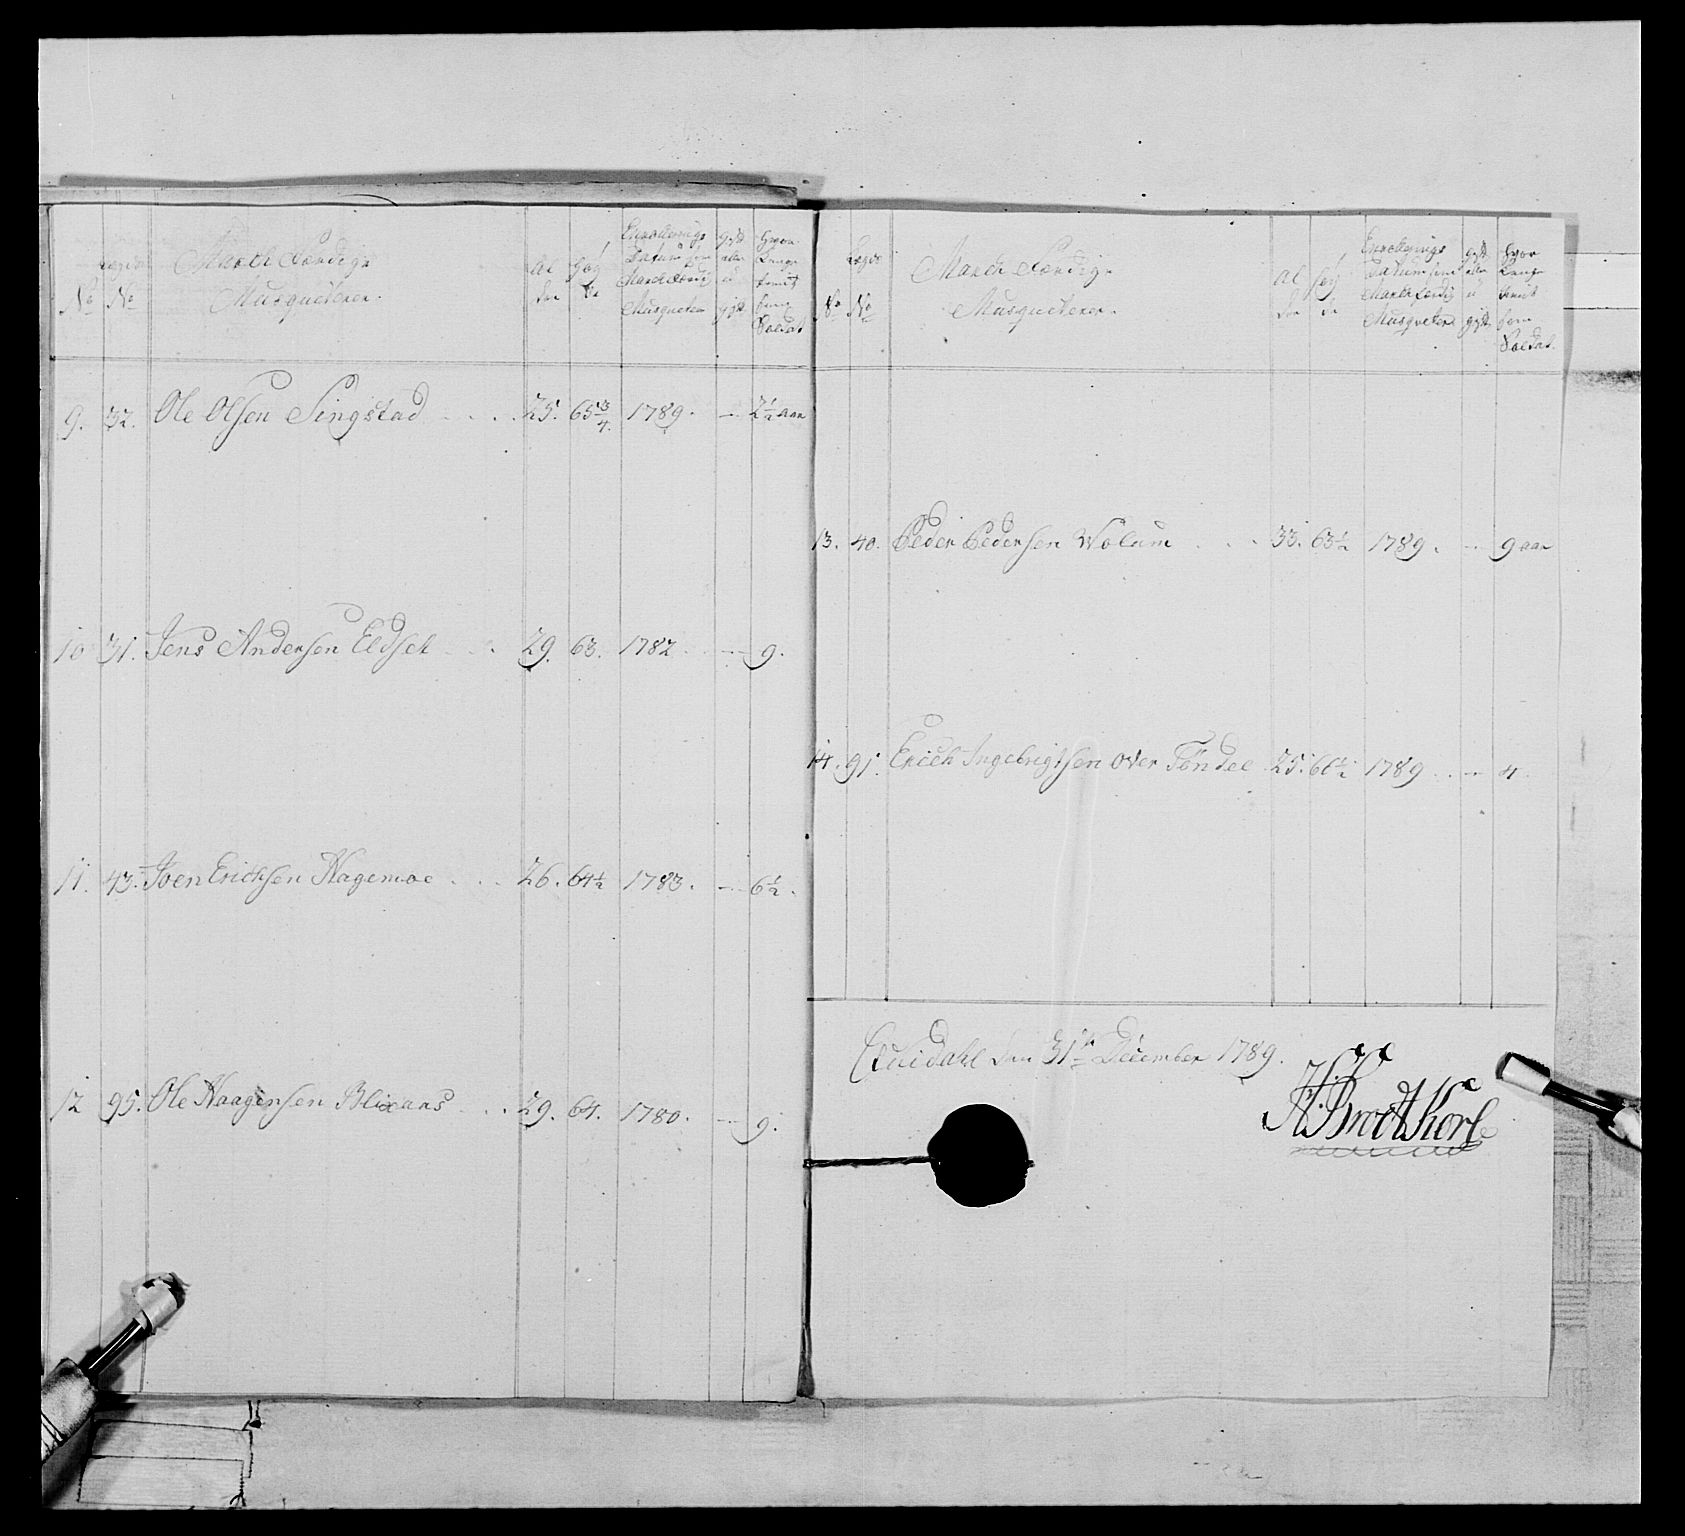 No
Lægds No
March Færdige Musqueterer.
Al der
Høy de
Enrollerings Datum som March Færdig Musqueteer
gift eller u gift
Hvor Længe tient som Soldat
9. 32. Ole Olsen Singstad . . . 25. 65 3/4. 1789. — 2 1/2 aar
10 31. Jens Andersen Eldset . . . 29. 63. 1782. — 9.
11. 43. Joen Ericksen Hagemoe . . . 26. 64 1/2 1783. — 6 1/2.
12 95. Ole Haagensen Blixaas . . . 29. 64. 1780. — 9.
No
Lægds No
March Færdige Musqueterer.
Al der
Høy de
Enrollerings Datum som March Færdig Musqueteer
gift eller u gift
Hvor Længe tient som Soldat.
13. 40. Peder Pedersen Wolum . . . 33. 63 1/2 1789. — 9 aar
14. 91. Erich Ingebrigtsen over Tøndee 25. 1789 . . — 4.
den 31te December 1789.